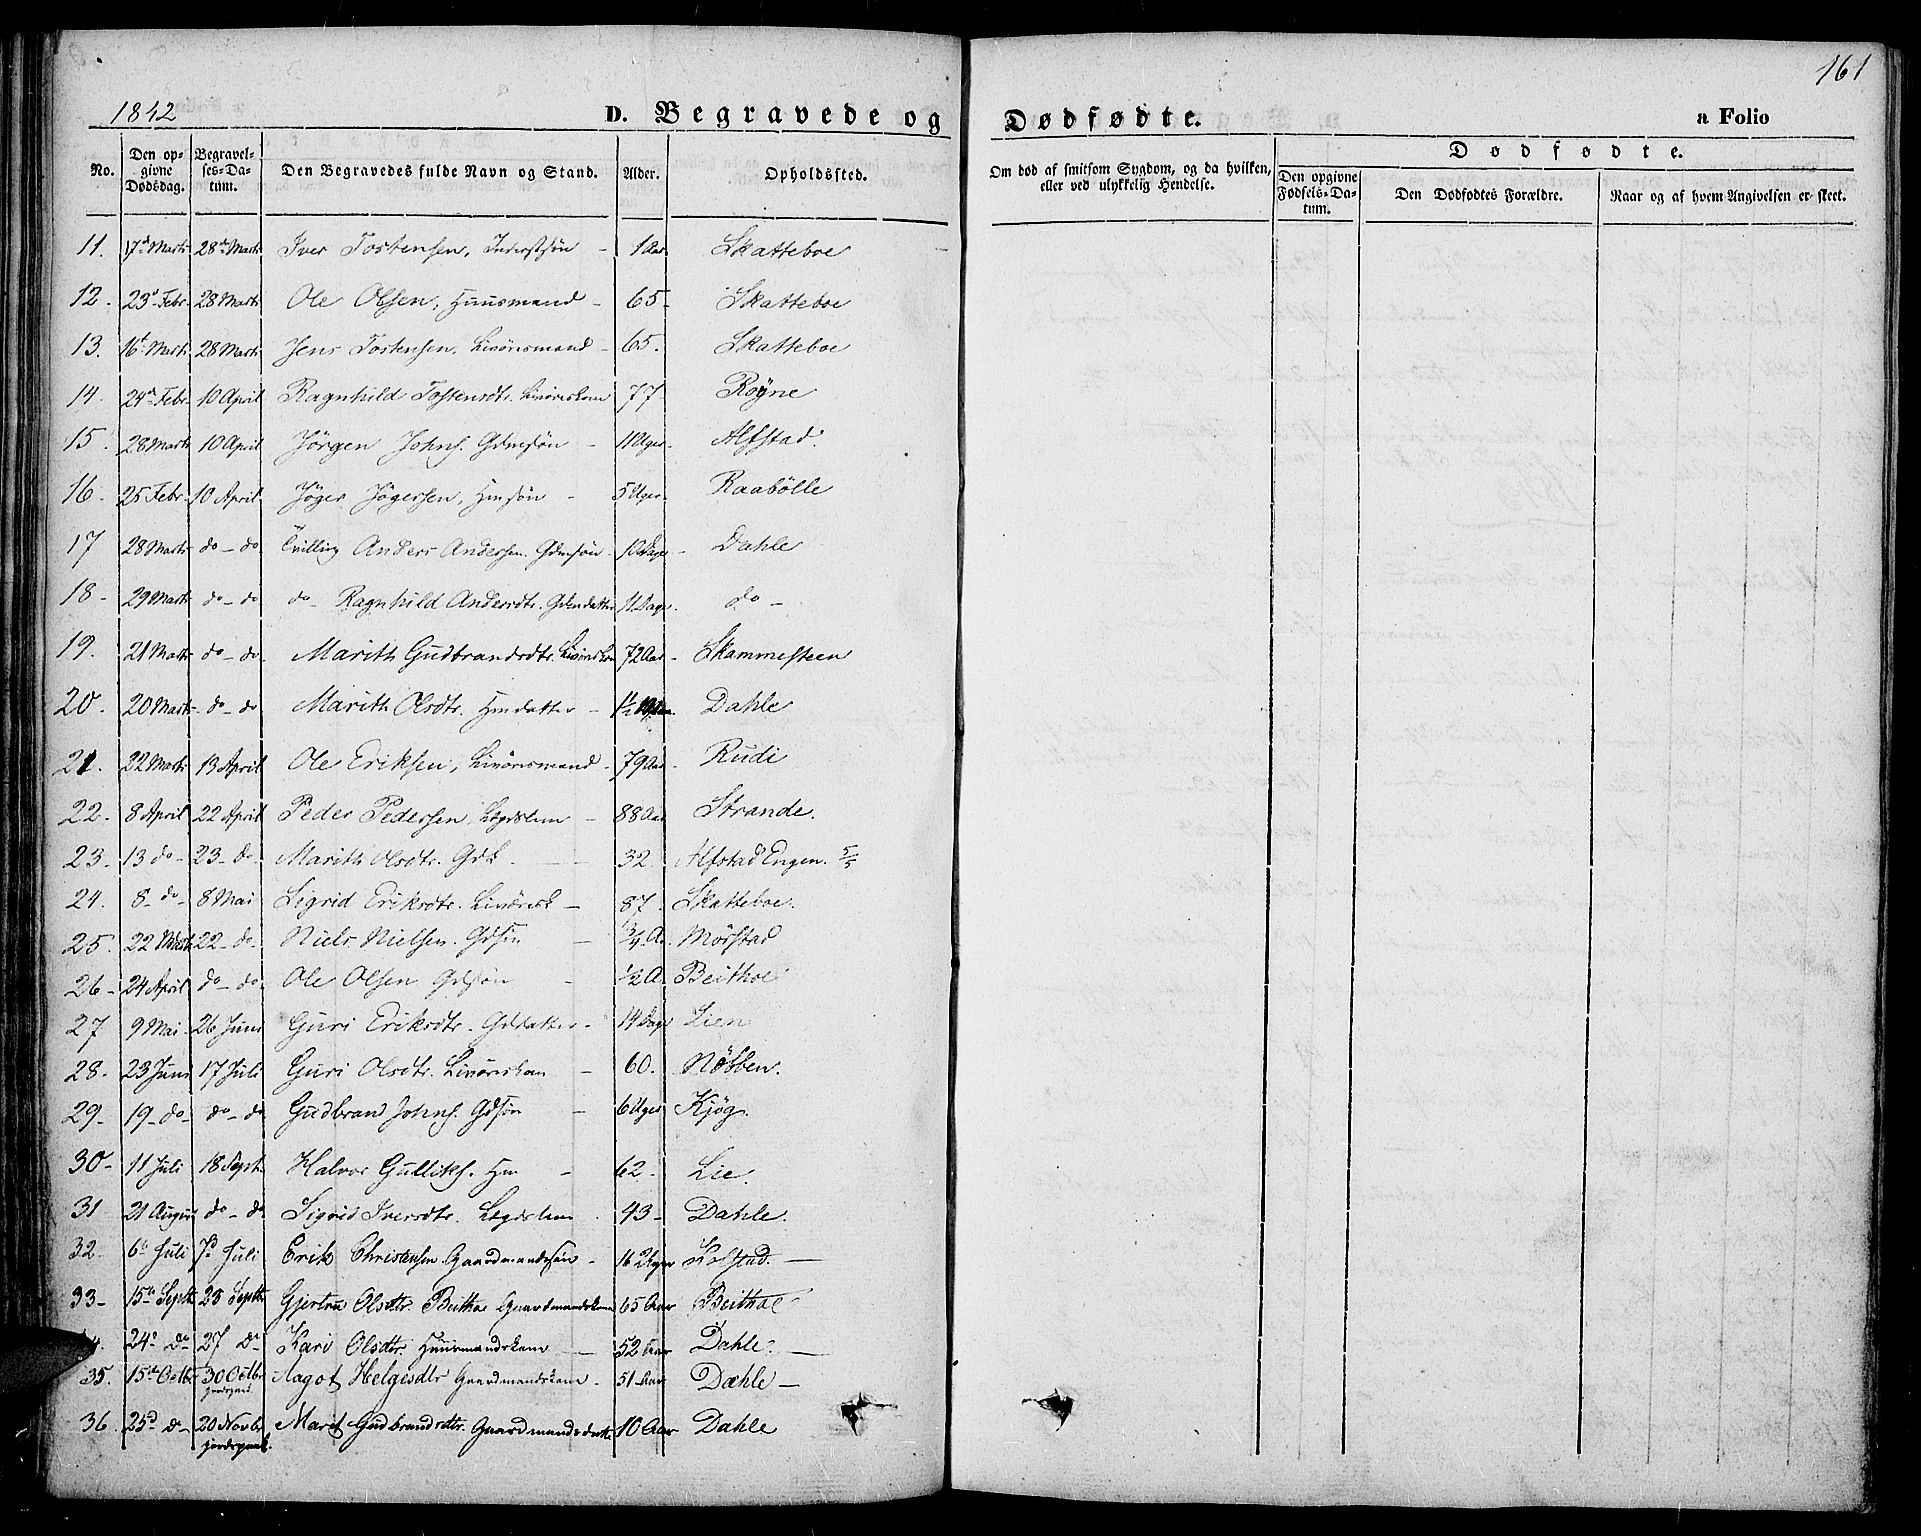 161
1842
D. Begravede og Dødfødte.
a Folio
No. Den opgivne Dødsdag. Begravelses-Datum. Den Begravedes fulde Navn og Stand. Alder. Opholdssted. Om død af smitsom Sygdom, og da hvilken, eller ved ulykkelig Hendelse. Dødfødte. Den opgivne Fødsels-Datum. Den Dødfødtes Forældre. Naar og af hvem Angivelsen er skeet.
11. 17d Marts 28de Marts Iver Tostensen, Inderstsøn - 1 Aar Skatteboe
12. 23d Febr. 28 Marts Ole Olsen, Huusmand - 65- Skatteboe
13. 16t Marts 28 Marts Jens Tostensen. Livörsmand - 65. Skatteboe
14. 24de Febr. 10 April Ragnhild Tostensdtr. Livöreskone 77 Royne
15. 28 Marts 10 April Jörgen Johns. Gdmsøn - 11 Uger Alfstad.
16. 25 Febr. 10 April Jöger Jögersen, Hmsøn - 5 Uger Raabölle
17 28 Marts do - do Tvilling Anders Andersen. Gdmsøn - 10 Dage - Dahle
18 - 29 Marts do - do do - Ragnhild Andersdtr. Gdmdatter 11 Dage. do -
19. 21 Marts do - do Marith Gudbrandsdtr. Livörskone 72 Aar - Skammesteen
20. 20 Marts do - do Marith Olsdtr. Hmdatter - 1½ Dahle
21. 22 Marts 13 April Ole Eriksen, Livörsmand - 79 Aar - Rudi
22. 8 April 22 April Peder Pedersen, Lægdslem - 88 Aar Strande.
23. 13 do - 23 - do Marith Olsdtr. Gdk - 32 Alfstad Engen. 5/5
24. 8 - do - 8 Mai Sigrid Eriksdtr. Livöresk - 87. Skatteboe.
25. 22 Marts 22 - do Niels Nielsen. Gdsøn - 3/4 A. Mörstad
26 - 24 April do - do Ole Olsen Gdsøn - 1/2 A. Beithoe
27 9 Mai - 26 Juni Guri Eriksdtr. Gddatter - 14 Dage Lien
28. 23 Juni 17 Juli Guri Olsdtr. Livöreskone - 60. Nöbben.
29. 19 - do - do - do Gudbrand Johns. Gdsøn - 6 Uger Kjög.
30 - 11 Juli 18 Sept. Halvor Gulliks. Hm - 62. Lie.
31 21 August do - do Sigrid Iversdtr. Lægdslem - 43 - Dahle.
32. 6te Juli 7d Juli Erik Christensen Gaardmandssøn - 16 Uger Kolstad. -
33 - 15de Septb 25 Septb Gjertru Olsdtr. Beithoe Gaardmandskone 65 Aar Beithoe
24d do 27 do Kari Olsdtr. Huusmandskone - 52 Aar Dahle. -
35. 15de Octbr 30 Octbr Aagot Helgesdtr Gaardmandskone - 51 Aar Dæhle -
36. 25d do - 20 Novbr Jordspaak. Marit Gudbrandsdtr. Gaardmandsdatter 10 Aar Dahle